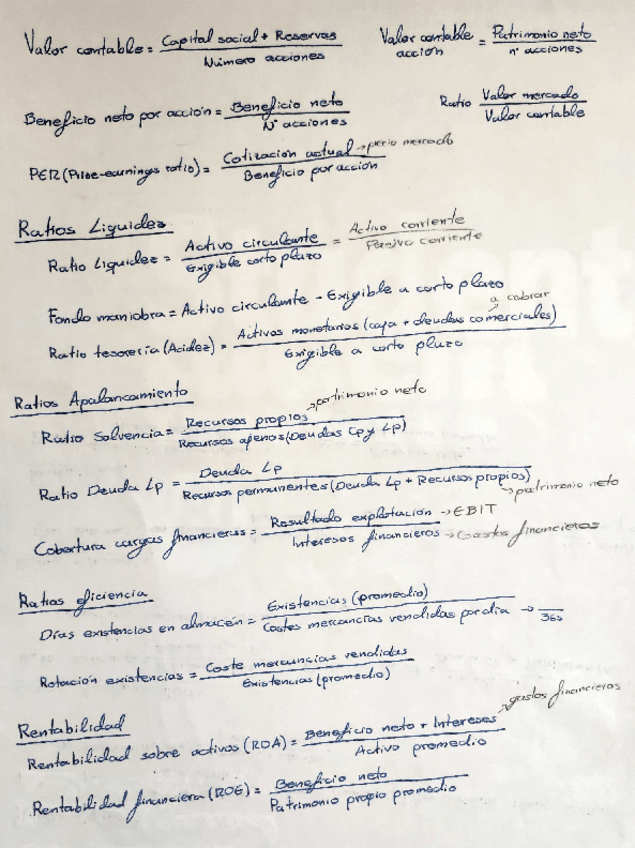 Valor contable = Capital social + Reservas / Número acciones
Valor contable acción = Patrimonio neto / nº acciones
Beneficio neto por acción = Beneficio neto / Nº acciones
Ratio Valor mercado / Valor contable
PER (Price-earnings ratio) = Cotización actual → precio mercado / Beneficio por acción
Ratios Liquidez
Ratio Liquidez = Activo circulante / Exigible corto plazo = Activo corriente / Pasivo corriente
Fondo maniobra = Activo circulante - Exigible a corto plazo
a cobrar
Ratio tesorería (Acidez) = Activos monetarios (caja + deudas comerciales) / Exigible a corto plazo
Ratios Apalancamiento
Ratio Solvencia = Recursos propios → patrimonio neto / Recursos ajenos (Deudas Cp y Lp)
Ratio Deuda Lp = Deuda Lp / Recursos permanentes (Deuda Lp + Recursos propios) → patrimonio neto
Cobertura cargas financieras = Resultado explotación → EBIT / Intereses financieros → Gastos financieros
Ratios eficiencia
Días existencias en almacén = Existencias (promedio) / Costes mercancías vendidas por día → / 365
Rotación existencias = Coste mercancías vendidas / Existencias (promedio)
Rentabilidad
Rentabilidad sobre activos (ROA) = Beneficio neto + Intereses → gastos financieros / Activo promedio
Rentabilidad financiera (ROE) = Beneficio neto / Patrimonio propio promedio